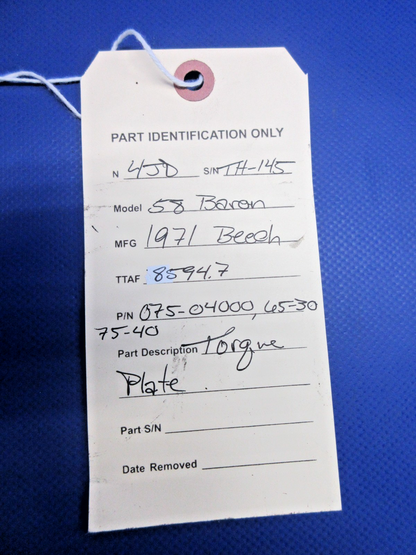 PART IDENTIFICATION ONLY
N 4JD S/N TH-145
Model 58 Baron
MFG 1971 Beech
TTAF 8594.7
P/N 075-04000, 65-30
75-40
Part Description Torque
Plate.
Part S/N
Date Removed